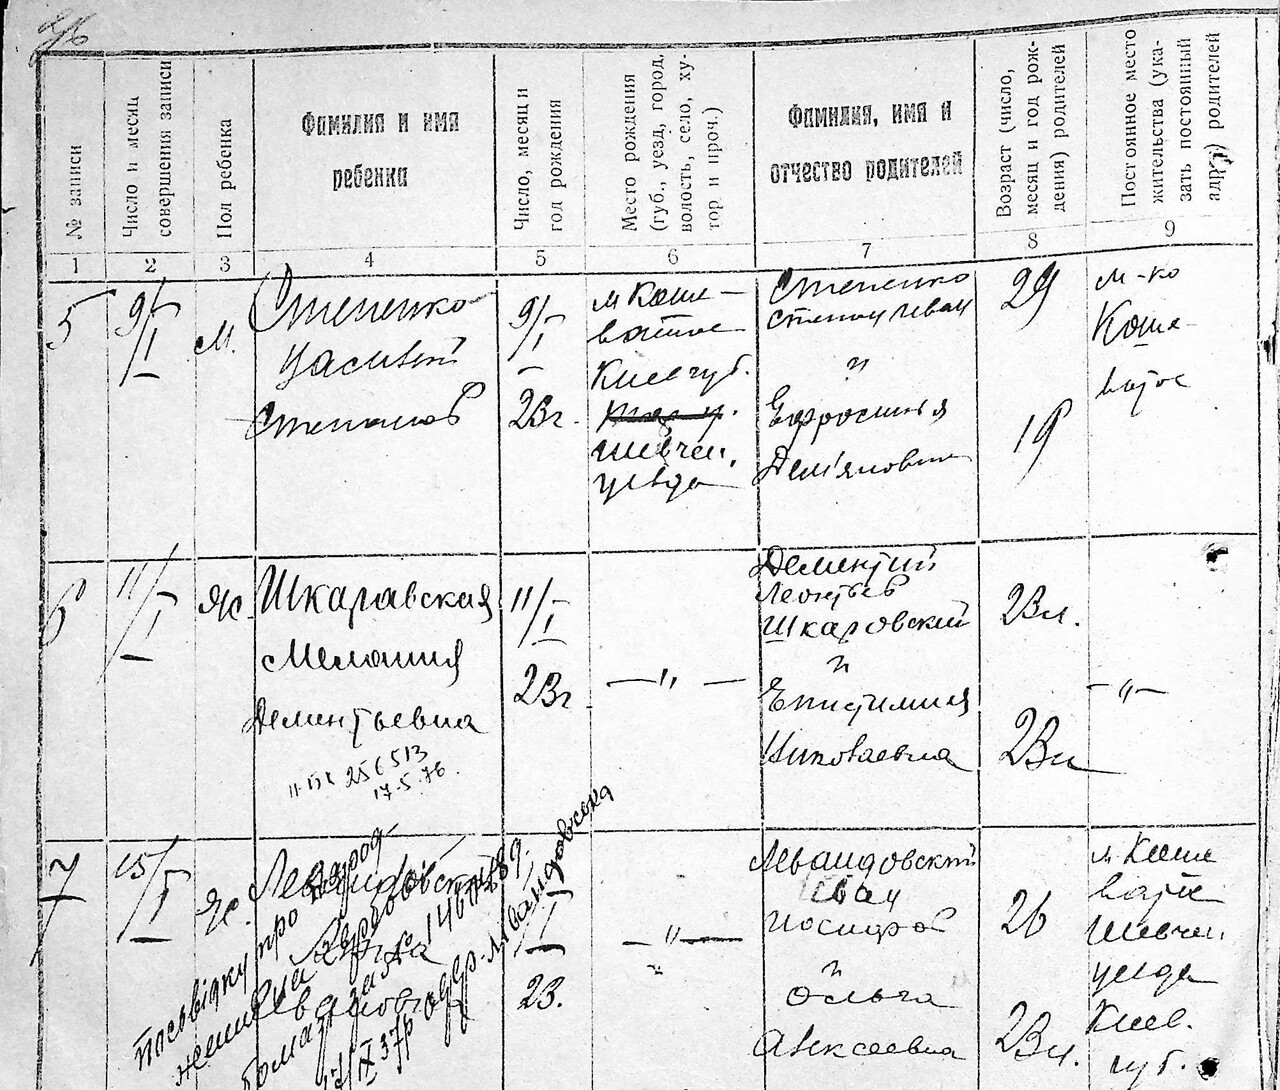 № записи
Число и месяц
совершения записи
Пол ребенка
Фамилия и имя
ребенка
Число, месяц и
год рождения
Место рождения
(губ., уезд, город,
волость, село, ху-
тор и проч.)
Фамилия, имя и
отчество родителей
Возраст (число,
месяц и год рож-
дения) родителей
Постоянное место
жительства (ука-
зать постоянный
адрес) родителей
1
2
3
4
5
6
7
8
9
5
9/I
М.
Степенко
Василий
Степанов
9/I
23г.
м Коше-
ватое
Киев губ.
Шевчен.
уезда
Степенко
Степан Иван
и
Ефросинья
Демьяновна
29
19
м-ко
Коше-
ватое
6
11/I
Ж.
Шкаравская
Мелания
Дементьевна
II-БК 256513
17.5.76.
11/I
23г
—"—
Дементий
Леонтьев
Шкаровский
и
Епистимия
Николаевна
23л.
23л
—"—
7
15/I
Ж.
Левандовская
Ивановна
23.
—"—
Левандовский
Иван
Иосифов
и
Ольга
Алексеевна
26
23л.
м Коше
вате
Шевчен
уезда
Киев.
губ.
Посвідку про народ-
ження
17/IX 37р одер. Левандовська